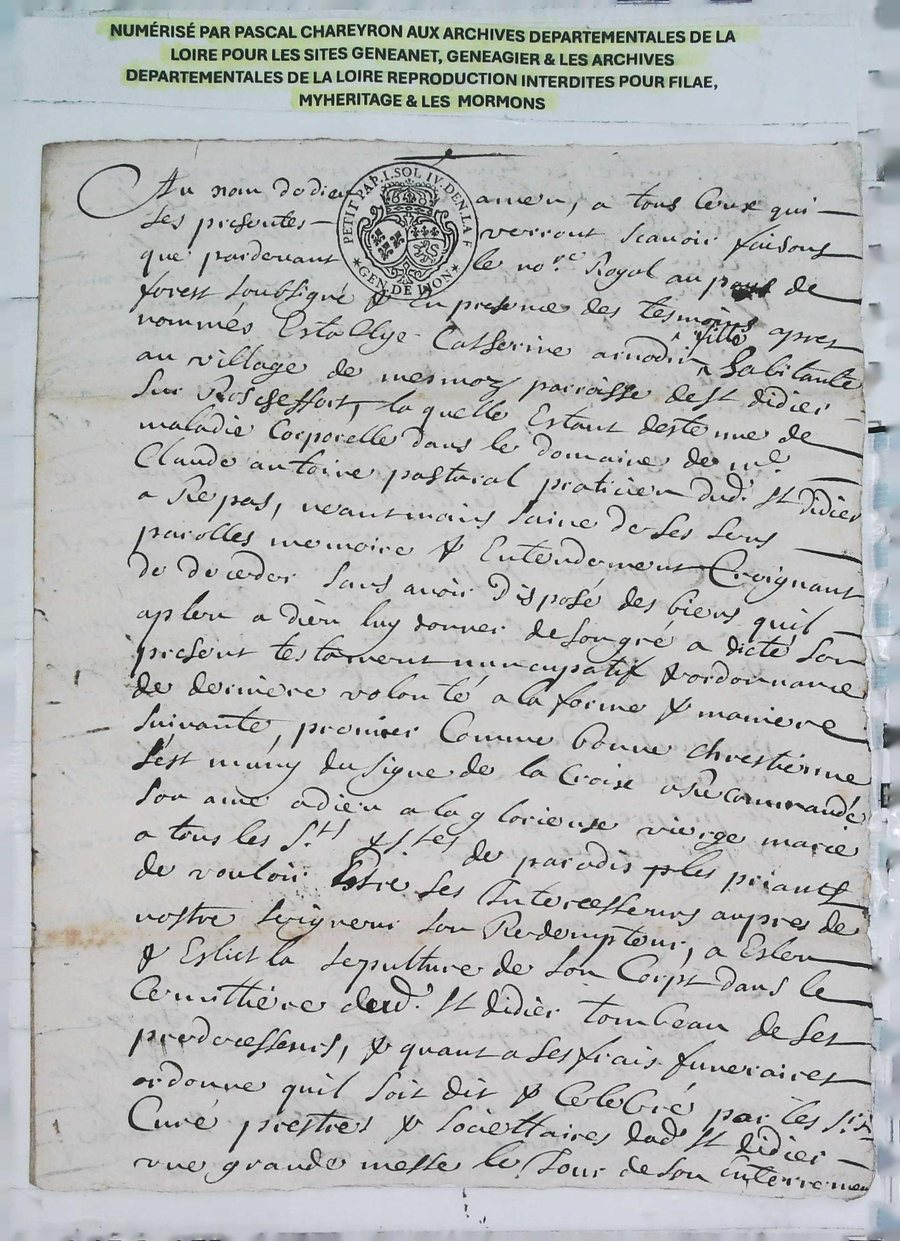 NUMÉRISÉ PAR PASCAL CHAREYRON AUX ARCHIVES DEPARTEMENTALES DE LA
LOIRE POUR LES SITES GENEANET, GENEAGIER & LES ARCHIVES
DEPARTEMENTALES DE LA LOIRE REPRODUCTION INTERDITES POUR FILAE,
MYHERITAGE & LES MORMONS
PETIT PAP. I. SOL IV. DEN. LA F
GEN. DE LION
Au nom de dieu amen, a tous ceux qui
ses presentes verront scavoir faisons
que pardevant le no.re Royal au pays de
forest soubsigné & en presence des tesmoins apres
nommés Establye Catherine arnodin fille habitante
au village de mesmoz parroisse de St didier
sur Rocheffort, laquelle Estant destenue de
maladie Corporelle dans le domaine de me
Claude antoine pastural praticien dud. St didier
a Repas, neantmoins saine de ses sens
parolles memoire & Entendement Croignant
de deceder sans avoir disposé des biens quil
apleu a dieu luy donner de son gré a dicté son
present testament nuncupatif & ordonnance
de derniere volonté a la forme & maniere
suivante, premier Comme bonne chrestienne
s'est muny du signe de la Croix a Recommandé
son ame a dieu a la glorieuse vierge marie
a tous les Sts & Stes de paradis les priants
de vouloir Estre ses Intercesseurs aupres de
nostre seigneur son Redempteur, a Esleu
& Eslict la sepulture de son Corps dans le
Cemithiere dud. St didier tombeau de ses
predecesseurs, & quant a ses frais funeraires
ordonne quil soit dit & Celebré par les Srs
Curé prestres & Societtaires dud St didier
une grande messe le Jour de son interremen